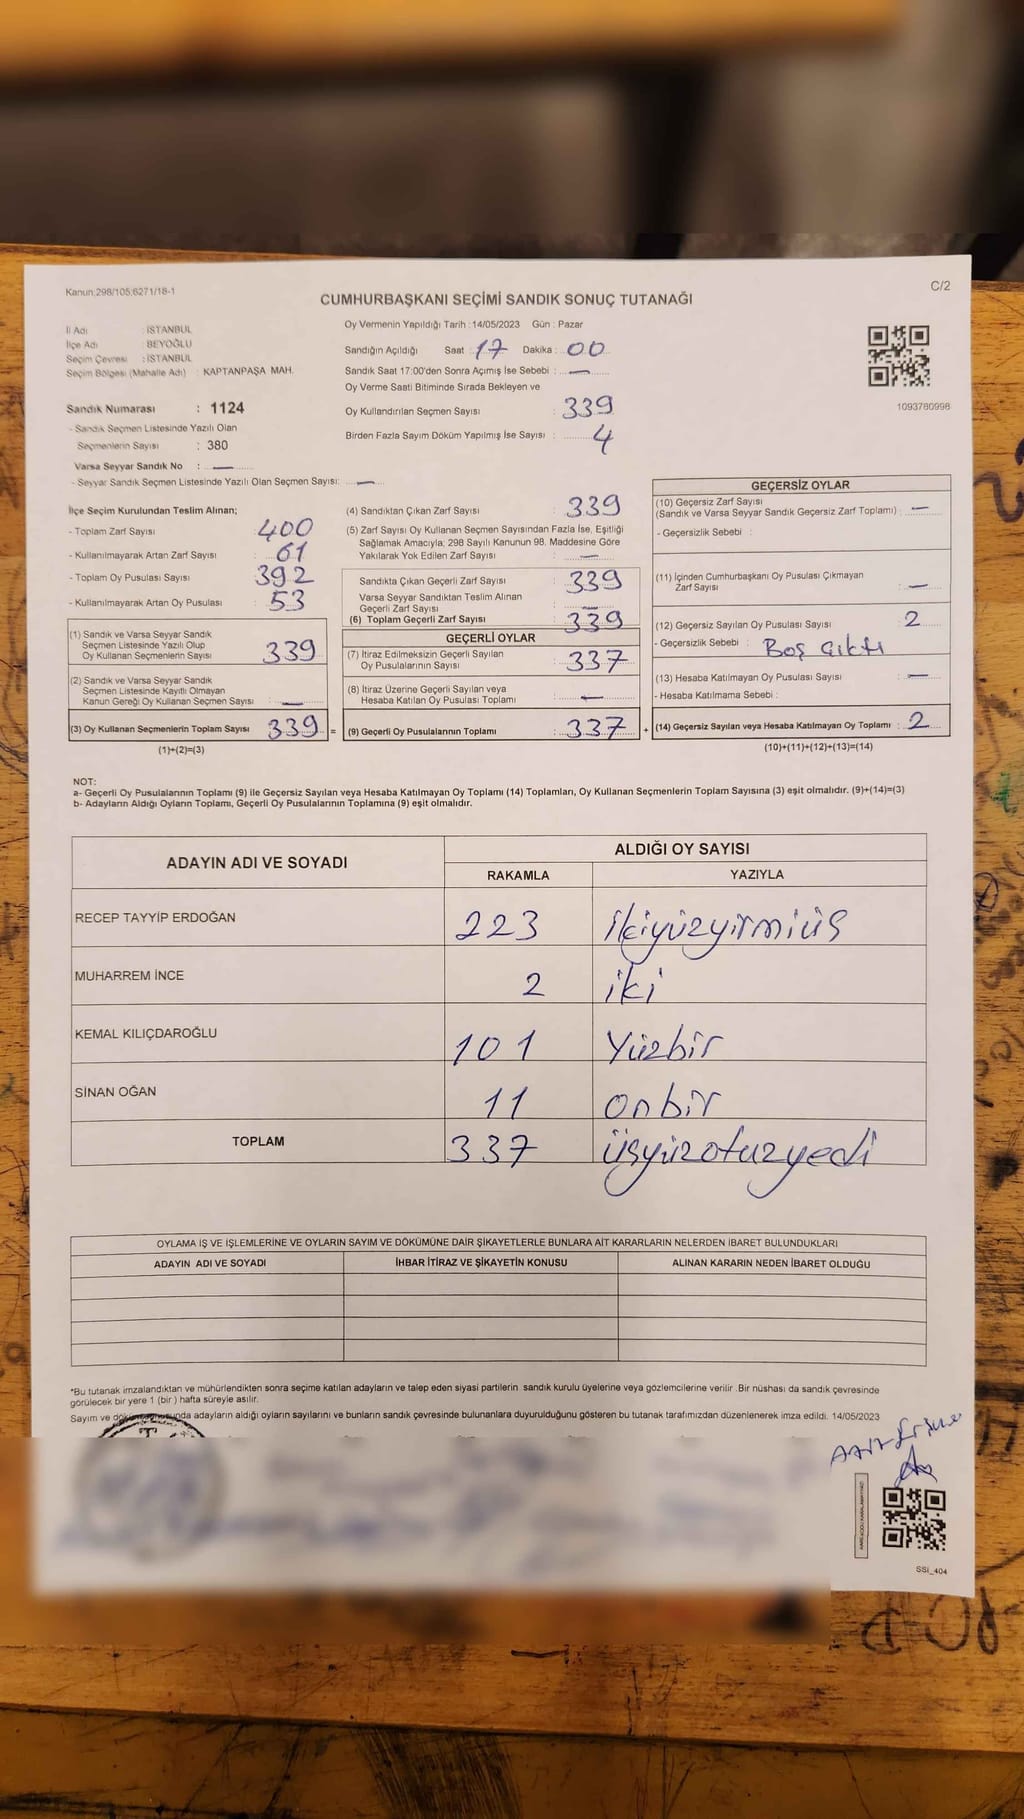 Kanun:298/105;6271/18-1
C/2
CUMHURBAŞKANI SEÇİMİ SANDIK SONUÇ TUTANAĞI
İl Adı : İSTANBUL
İlçe Adı : BEYOĞLU
Seçim Çevresi : İSTANBUL
Seçim Bölgesi (Mahalle Adı) : KAPTANPAŞA MAH.
Sandık Numarası : 1124
- Sandık Seçmen Listesinde Yazılı Olan
Seçmenlerin Sayısı : 380
Varsa Seyyar Sandık No : —
- Seyyar Sandık Seçmen Listesinde Yazılı Olan Seçmen Sayısı: —
Oy Vermenin Yapıldığı Tarih :14/05/2023 Gün : Pazar
Sandığın Açıldığı Saat : 17 Dakika : 00
Sandık Saat 17:00'den Sonra Açımış İse Sebebi : —
Oy Verme Saati Bitiminde Sırada Bekleyen ve
Oy Kullandırılan Seçmen Sayısı : 339
Birden Fazla Sayım Döküm Yapılmış İse Sayısı : 4
1093780998
İlçe Seçim Kurulundan Teslim Alınan;
- Toplam Zarf Sayısı 400
- Kullanılmayarak Artan Zarf Sayısı : 61
- Toplam Oy Pusulası Sayısı 392
- Kullanılmayarak Artan Oy Pusulası : 53
(1) Sandık ve Varsa Seyyar Sandık
Seçmen Listesinde Yazılı Olup
Oy Kullanan Seçmenlerin Sayısı 339
(2) Sandık ve Varsa Seyyar Sandık
Seçmen Listesinde Kayıtlı Olmayan
Kanun Gereği Oy Kullanan Seçmen Sayısı : —
(3) Oy Kullanan Seçmenlerin Toplam Sayısı 339 =
(1)+(2)=(3)
(4) Sandıktan Çıkan Zarf Sayısı : 339
(5) Zarf Sayısı Oy Kullanan Seçmen Sayısından Fazla İse, Eşitliği
Sağlamak Amacıyla; 298 Sayılı Kanunun 98. Maddesine Göre
Yakılarak Yok Edilen Zarf Sayısı : —
Sandıkta Çıkan Geçerli Zarf Sayısı : 339
Varsa Seyyar Sandıktan Teslim Alınan
Geçerli Zarf Sayısı : —
(6) Toplam Geçerli Zarf Sayısı : 339
GEÇERLİ OYLAR
(7) İtiraz Edilmeksizin Geçerli Sayılan
Oy Pusulalarının Sayısı : 337
(8) İtiraz Üzerine Geçerli Sayılan veya
Hesaba Katılan Oy Pusulası Toplamı : —
(9) Geçerli Oy Pusulalarının Toplamı : 337 +
GEÇERSİZ OYLAR
(10) Geçersiz Zarf Sayısı
(Sandık ve Varsa Seyyar Sandık Geçersiz Zarf Toplamı) : —
- Geçersizlik Sebebi :
(11) İçinden Cumhurbaşkanı Oy Pusulası Çıkmayan
Zarf Sayısı : —
(12) Geçersiz Sayılan Oy Pusulası Sayısı : 2
- Geçersizlik Sebebi : Boş Çıktı
(13) Hesaba Katılmayan Oy Pusulası Sayısı : —
- Hesaba Katılmama Sebebi :
(14) Geçersiz Sayılan veya Hesaba Katılmayan Oy Toplamı : 2
(10)+(11)+(12)+(13)=(14)
NOT:
a- Geçerli Oy Pusulalarının Toplamı (9) ile Geçersiz Sayılan veya Hesaba Katılmayan Oy Toplamı (14) Toplamları, Oy Kullanan Seçmenlerin Toplam Sayısına (3) eşit olmalıdır. (9)+(14)=(3)
b- Adayların Aldığı Oyların Toplamı, Geçerli Oy Pusulalarının Toplamına (9) eşit olmalıdır.
ADAYIN ADI VE SOYADI
ALDIĞI OY SAYISI
RAKAMLA YAZIYLA
RECEP TAYYİP ERDOĞAN 223 ikiyüzyirmiüç
MUHARREM İNCE 2 iki
KEMAL KILIÇDAROĞLU 101 Yüzbir
SİNAN OĞAN 11 onbir
TOPLAM 337 üçyüzotuzyedi
OYLAMA İŞ VE İŞLEMLERİNE VE OYLARIN SAYIM VE DÖKÜMÜNE DAİR ŞİKAYETLERLE BUNLARA AİT KARARLARIN NELERDEN İBARET BULUNDUKLARI
ADAYIN ADI VE SOYADI İHBAR İTİRAZ VE ŞİKAYETİN KONUSU ALINAN KARARIN NEDEN İBARET OLDUĞU
*Bu tutanak imzalandıktan ve mühürlendikten sonra seçime katılan adayların ve talep eden siyasi partilerin sandık kurulu üyelerine veya gözlemcilerine verilir .Bir nüshası da sandık çevresinde
görülecek bir yere 1 (bir ) hafta süreyle asılır.
Sayım ve adayların aldığı oyların sayılarını ve bunların sandık çevresinde bulunanlara duyurulduğunu gösteren bu tutanak tarafımızdan düzenlenerek imza edildi. 14/05/2023
SSI_404